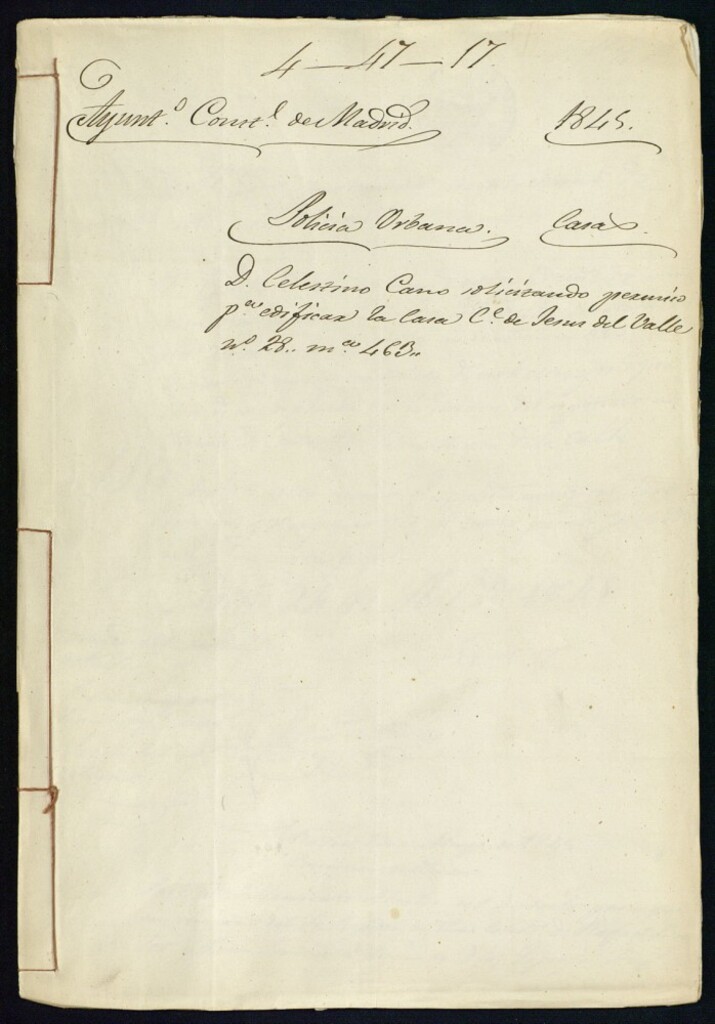 4-47-17
Ayunt.º Const.l de Madrid. 1845.
Policia Urbana. Casas.
D. Celestino Cano solicitando permiso
p.a edificar la Casa C.e de Jesus del Valle
n.º 28.. m.a 463..